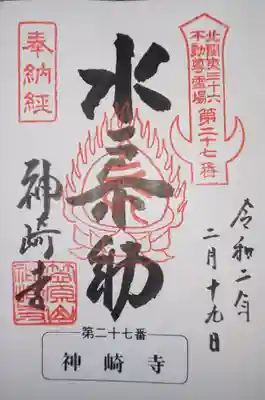 北関東三十六
不動尊霊場
第二十七番
奉納経
水不動
神崎寺
令和二年
二月十九日
第二十七番
神崎寺